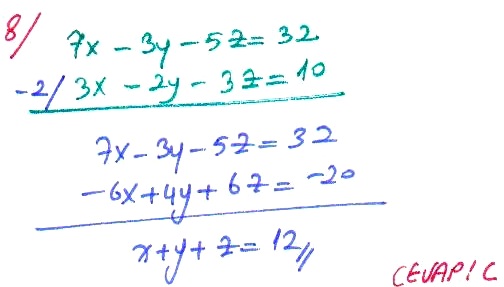 8/ 7x - 3y - 5z = 32
-2/ 3x - 2y - 3z = 10
7x - 3y - 5z = 32
-6x + 4y + 6z = -20
x + y + z = 12//
CEVAP: C